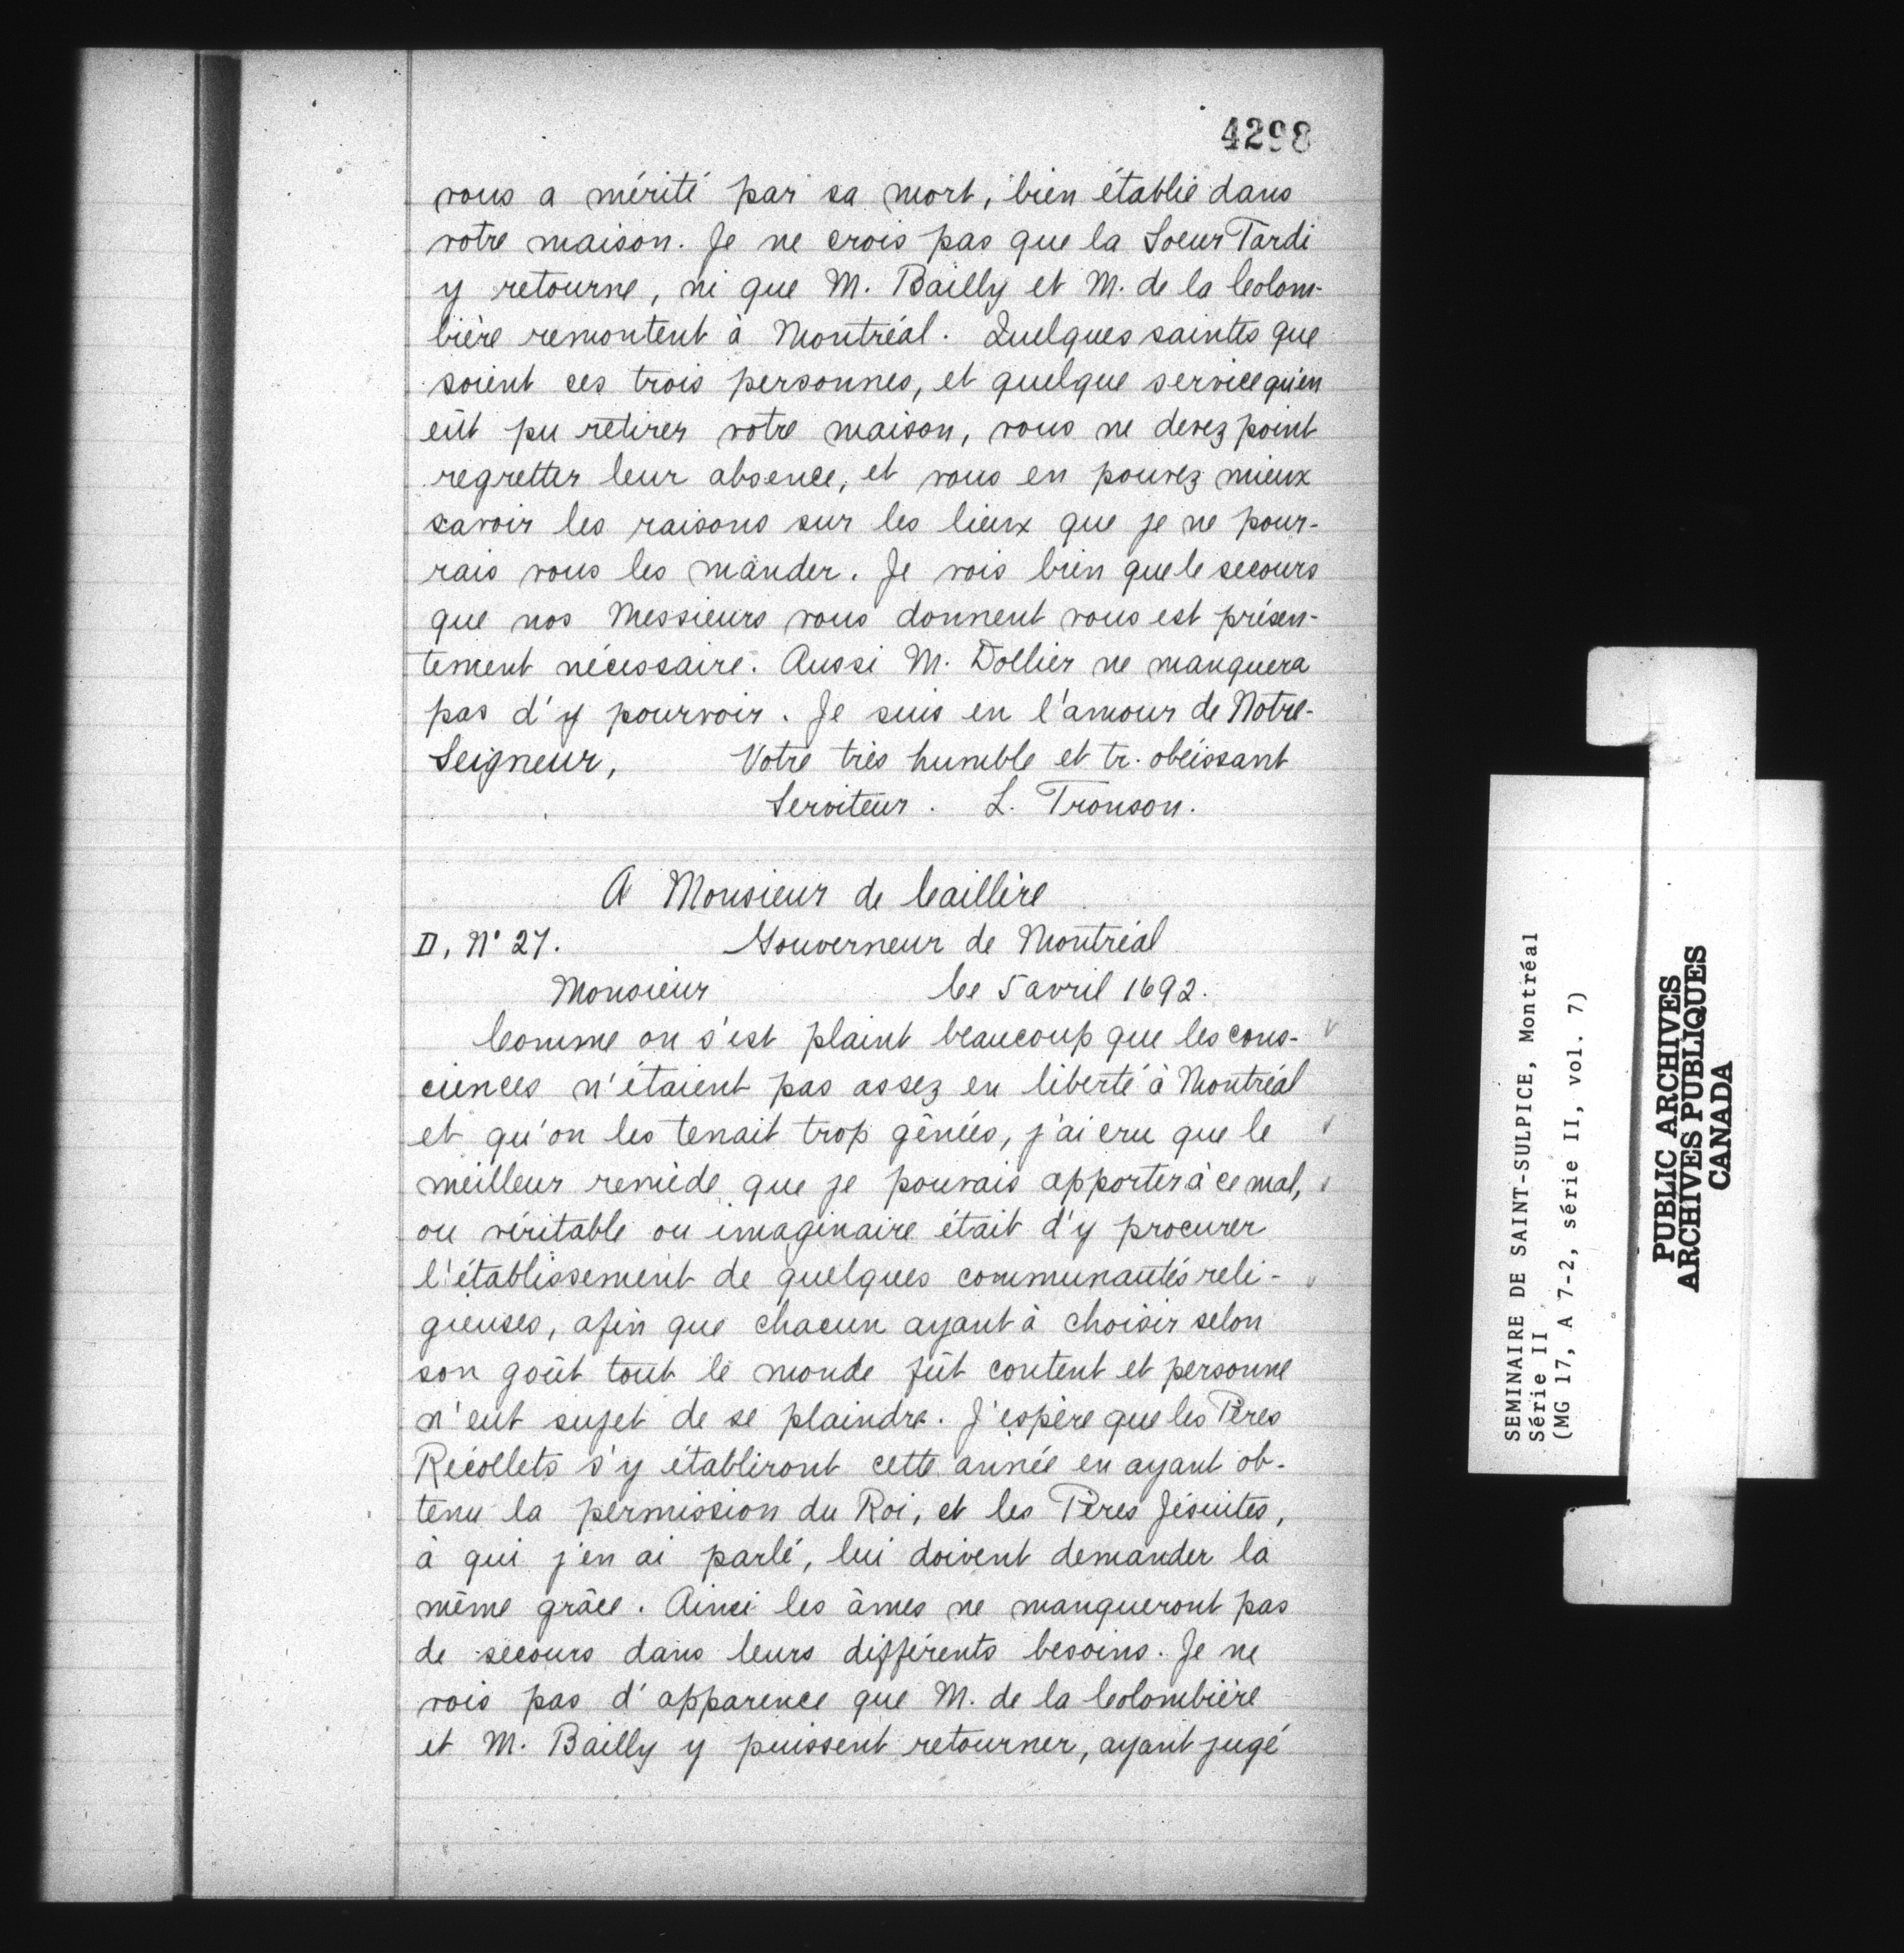 4298
vous a mérité par sa mort, bien établie dans
votre maison. Je ne crois pas que la Soeur Tardi
y retourne, ni que M. Bailly et M. de la Colom-
bière remontent à Montréal. Quelques saintes que
soient ces trois personnes, et quelque service qu'en
eût pu retirer votre maison, vous ne devez point
regretter leur absence, et vous en pouvez mieux
savoir les raisons sur les lieux que je ne pour-
rais vous les mander. Je vois bien que le secours
que nos Messieurs vous donnent vous est présen-
tement nécessaire. Aussi M. Dollier ne manquera
pas d'y pourvoir. Je suis en l'amour de Notre-
Seigneur, Votre très humble et tr. obéissant
Serviteur. L. Tronson.
A Monsieur de Caillère
D, N° 27. Gouverneur de Montréal
Monsieur Ce 5 avril 1692.
Comme on s'est plaint beaucoup que les cons-
ciences n'étaient pas assez en liberté à Montréal
et qu'on les tenait trop gênées, j'ai cru que le
meilleur remède que je pouvais apporter à ce mal,
ou véritable ou imaginaire était d'y procurer
l'établissement de quelques communautés reli-
gieuses, afin que chacun ayant à choisir selon
son goût tout le monde fût content et personne
n'eut sujet de se plaindre. J'espère que les Pères
Récollets s'y établiront cette année en ayant ob-
tenu la permission du Roi, et les Pères Jésuites,
à qui j'en ai parlé, lui doivent demander la
même grâce. Ainsi les âmes ne manqueront pas
de secours dans leurs différents besoins. Je ne
vois pas d'apparence que M. de la Colombière
et M. Bailly y puissent retourner, ayant jugé
SEMINAIRE DE SAINT-SULPICE, Montréal
Série II
(MG 17, A 7-2, série II, vol. 7)
PUBLIC ARCHIVES
ARCHIVES PUBLIQUES
CANADA